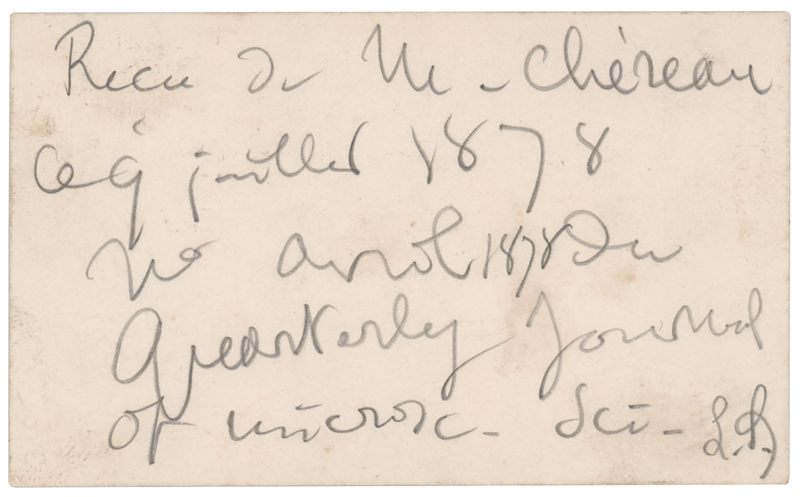 Recu de M - Chéreau
Ce 9 juillet 1878
No avril 1878 Du
Quarterly Journal
of microsc - Sci - L.P.